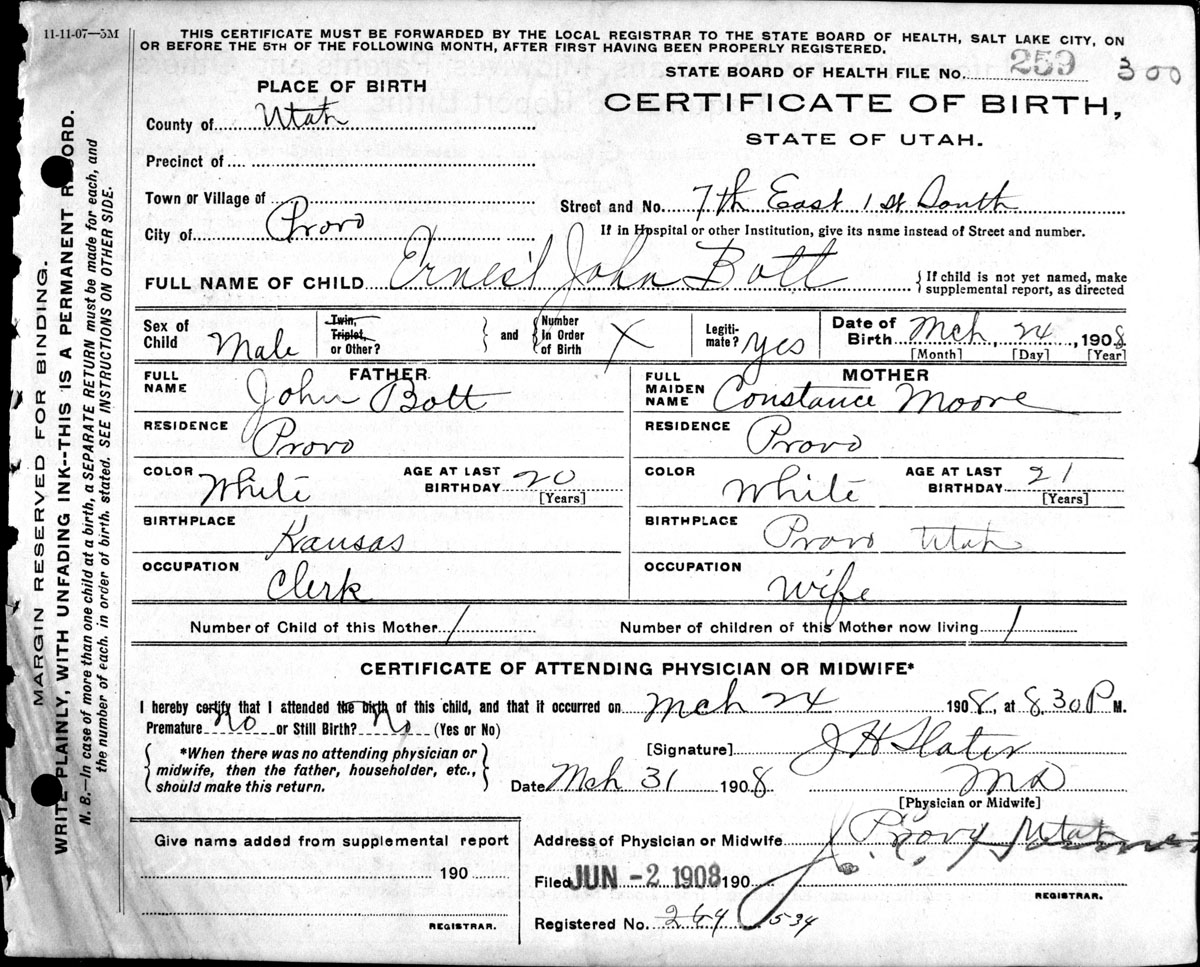 11-11-07—5M
THIS CERTIFICATE MUST BE FORWARDED BY THE LOCAL REGISTRAR TO THE STATE BOARD OF HEALTH, SALT LAKE CITY, ON
OR BEFORE THE 5TH OF THE FOLLOWING MONTH, AFTER FIRST HAVING BEEN PROPERLY REGISTERED.
STATE BOARD OF HEALTH FILE NO. 259 300
PLACE OF BIRTH
CERTIFICATE OF BIRTH,
STATE OF UTAH.
County of Utah
Precinct of
Town or Village of
Street and No. 7th East 1st South
City of Provo
If in Hospital or other Institution, give its name instead of Street and number.
FULL NAME OF CHILD Ernest John Bott
{If child is not yet named, make
supplemental report, as directed
Sex of Child Male
Twin, Triplet, or Other?
and
Number in Order of Birth X
Legitimate? yes
Date of Birth Mch 24, 1908
[Month] [Day] [Year]
FATHER
FULL NAME John Bott
MOTHER
FULL MAIDEN NAME Constance Moore
RESIDENCE Provo
RESIDENCE Provo
COLOR White AGE AT LAST BIRTHDAY 20 [Years]
COLOR White AGE AT LAST BIRTHDAY 21 [Years]
BIRTHPLACE Kansas
BIRTHPLACE Provo Utah
OCCUPATION Clerk
OCCUPATION Wife
Number of Child of this Mother 1 Number of children of this Mother now living 1
CERTIFICATE OF ATTENDING PHYSICIAN OR MIDWIFE*
I hereby certify that I attended the birth of this child, and that it occurred on Mch 24 1908, at 8.30 P M.
Premature No or Still Birth? No (Yes or No)
*When there was no attending physician or
midwife, then the father, householder, etc.,
should make this return.
[Signature] J H Slater
Date Mch 31 1908 MD
[Physician or Midwife]
Give name added from supplemental report
190
REGISTRAR.
Address of Physician or Midwife Utah
Filed JUN -2 1908 190
REGISTRAR.
Registered No. 264 534
MARGIN RESERVED FOR BINDING.
WRITE PLAINLY, WITH UNFADING INK--THIS IS A PERMANENT RECORD.
N. B.—In case of more than one child at a birth, a SEPARATE RETURN must be made for each, and
the number of each, in order of birth, stated. SEE INSTRUCTIONS ON OTHER SIDE.